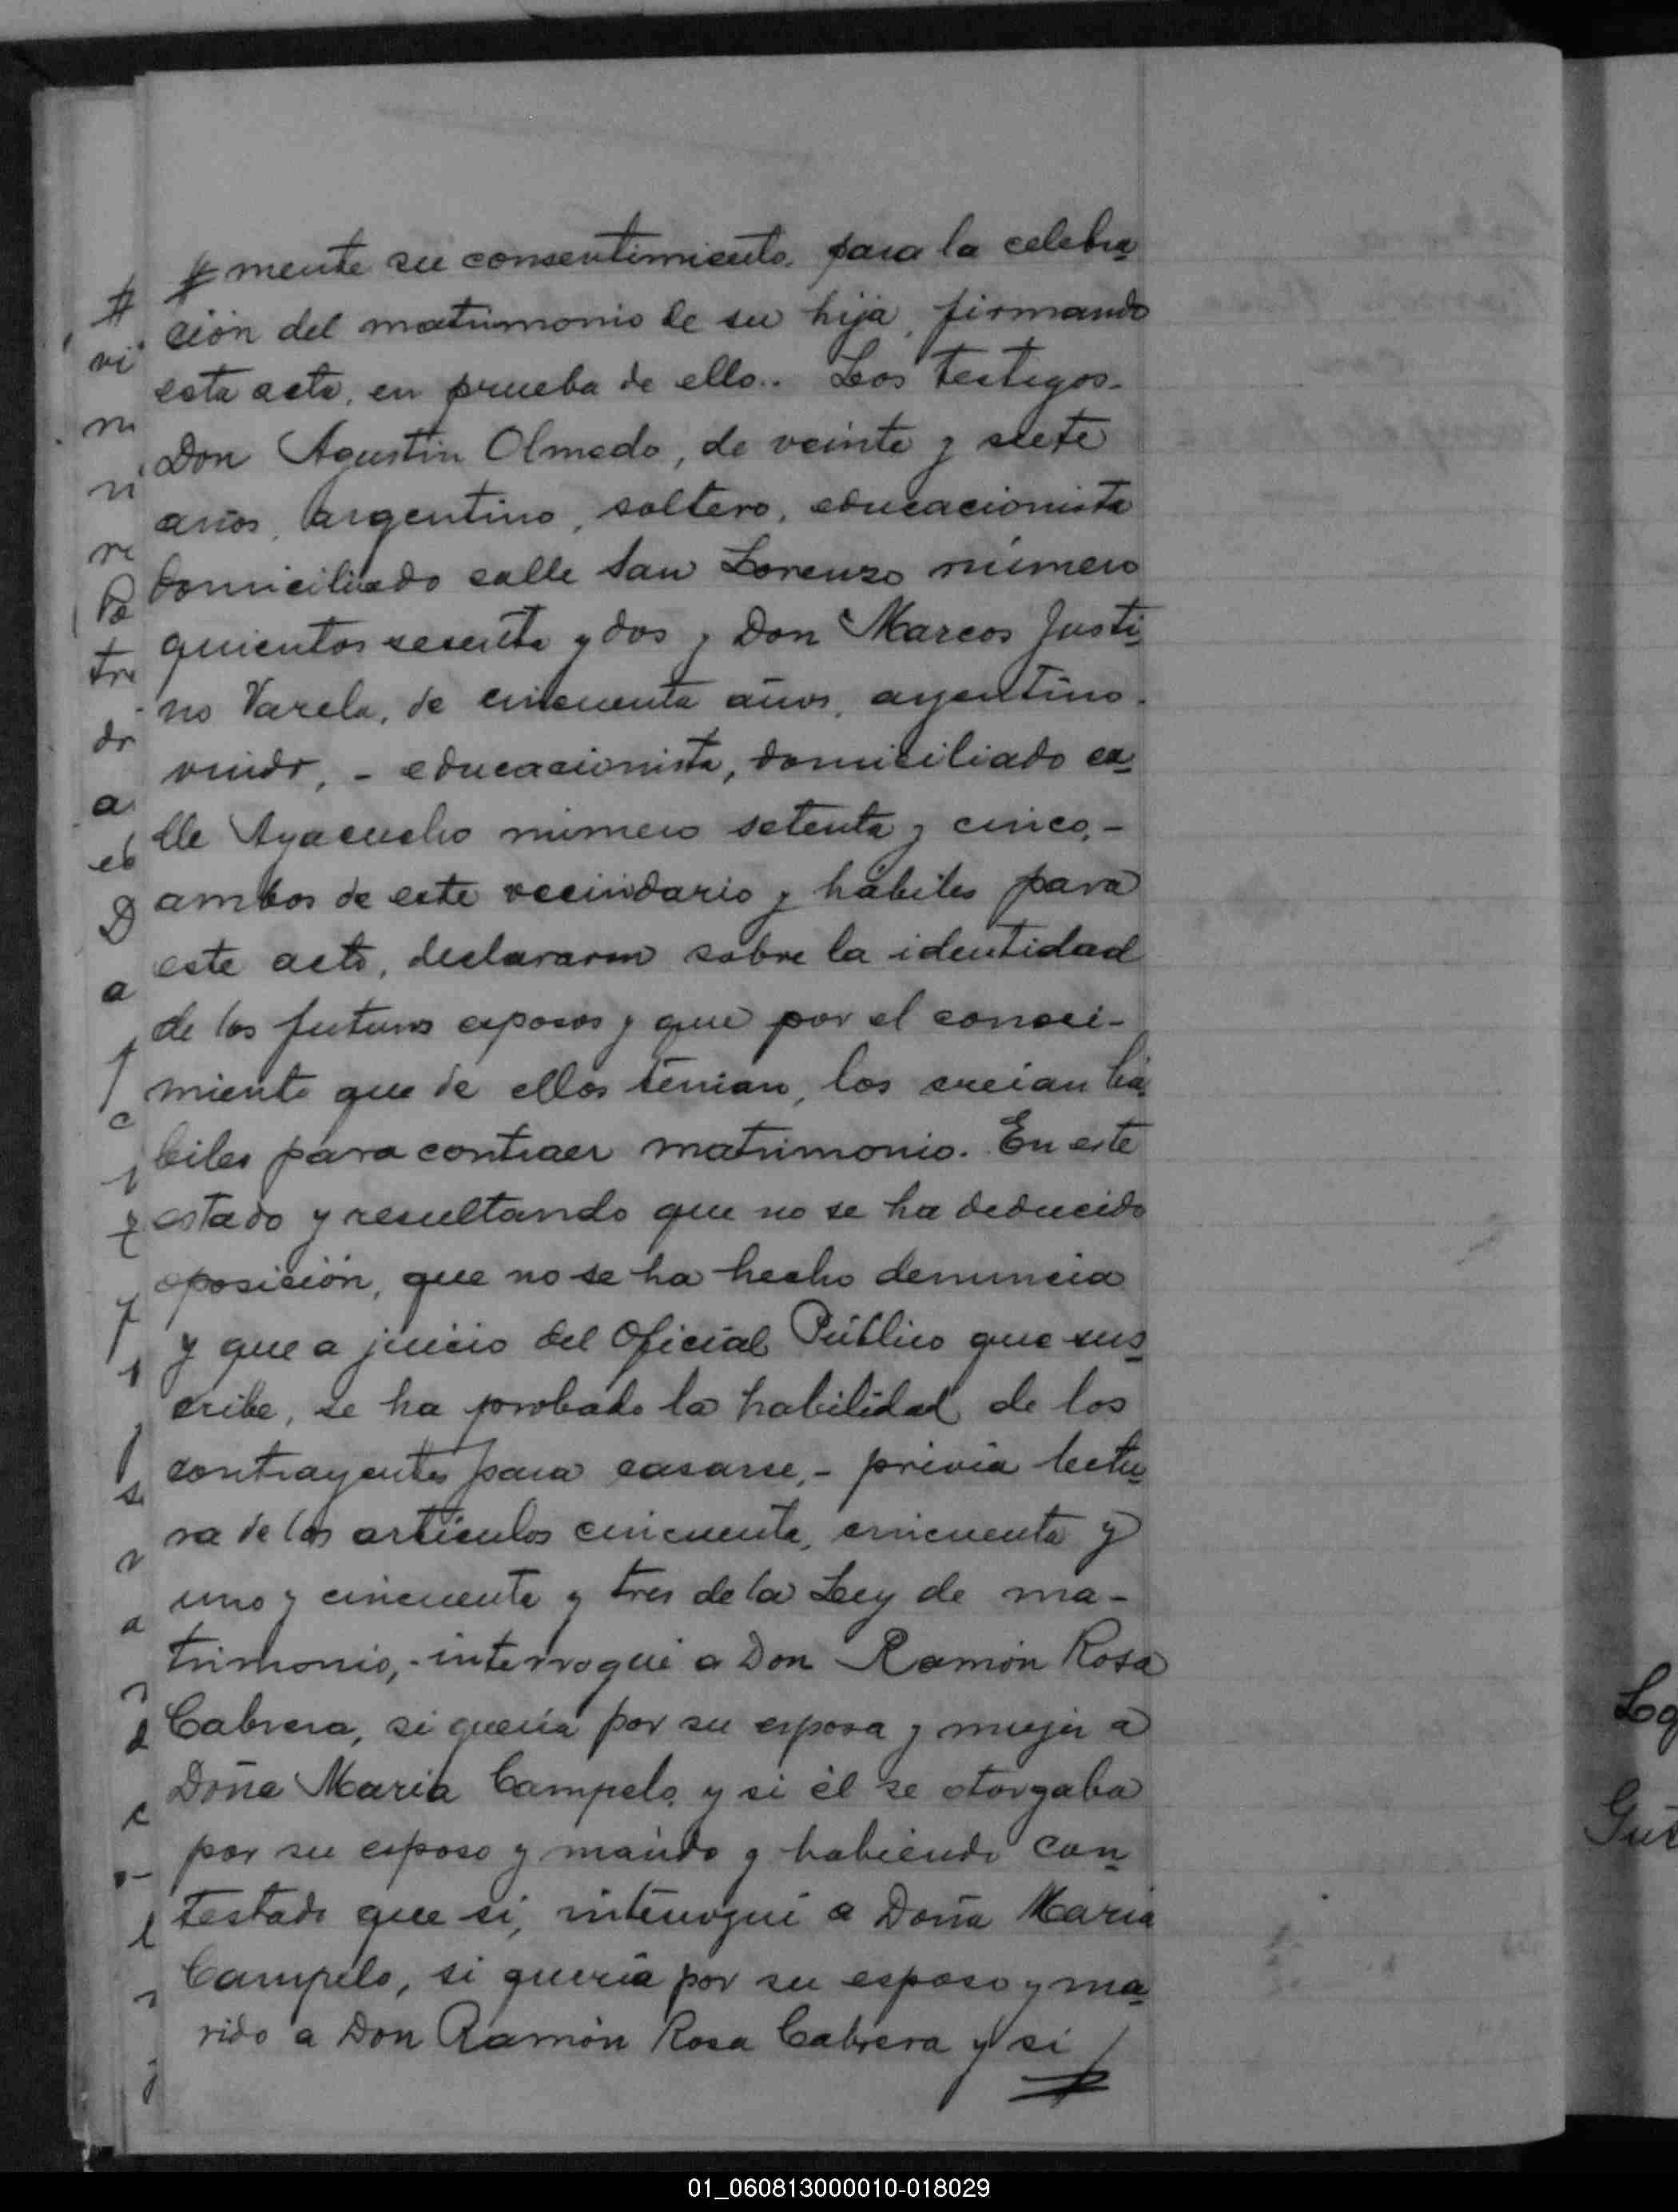 # mente su consentimiento para la celebra
ción del matrimonio de su hija, firmando
esta acta, en prueba de ello.. Los testigos
Don Agustin Olmedo, de veinte y siete
años, argentino, soltero, educacionista
domiciliado calle San Lorenzo número
quientos sesenta y dos y Don Marcos Justi
no Varela, de cincuenta años, argentino
viudo, - educacionista, domiciliado ca
lle Ayacucho número setenta y cinco, -
ambos de este vecindario y hábiles para
este acto, declararon sobre la identidad
de los futuros esposos y que por el conoci-
miento que de ellos tenian, los creian há
biles para contraer matrimonio. En este
estado y resultando que no se ha deducido
oposición, que no se ha hecho denuncia
y que a juicio del Oficial Público que sus
cribe, se ha probado la habilidad de los
contrayentes para casarse, - previa lectu
ra de los artículos cincuenta, cincuenta y
uno y cincuenta y tres de la Ley de ma-
trimonio, - interrogué a Don Ramón Rosa
Cabrera, si quería por su esposa y mujer a
Doña María Campelo y si él se otorgaba
por su esposo y marido y habiendo con
testado que si, interrogué a Doña María
Campelo, si quería por su esposo y ma
rido a Don Ramón Rosa Cabrera y si /
#
01_060813000010-018029